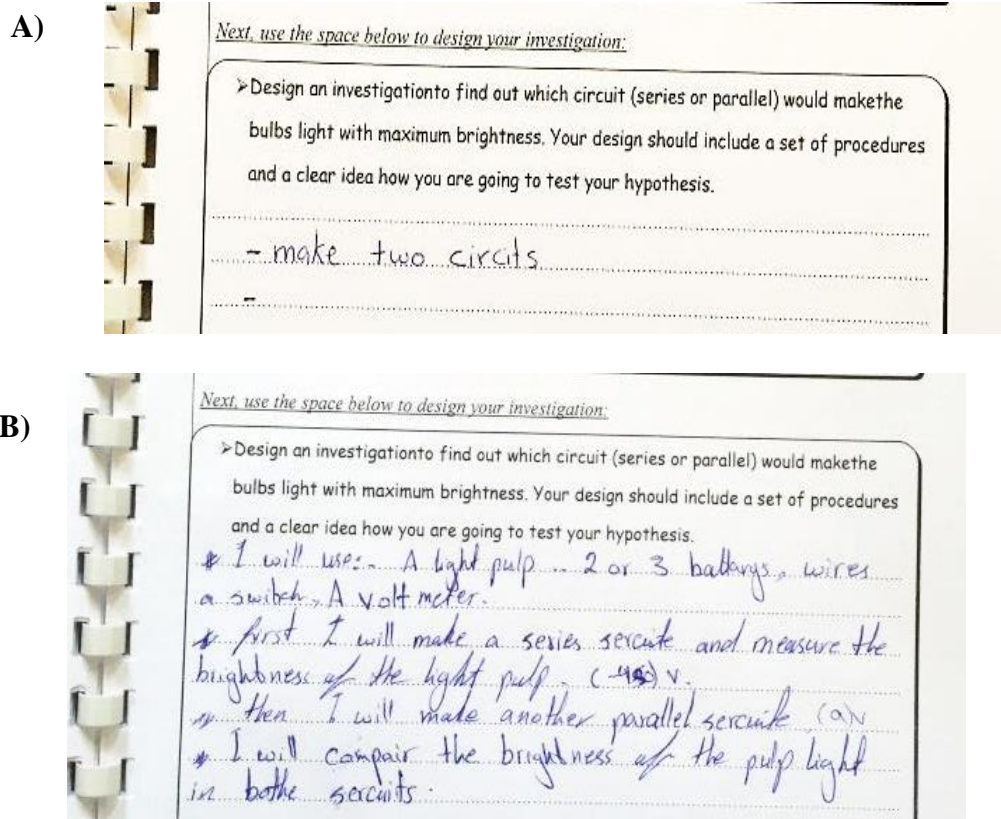 A)
Next, use the space below to design your investigation:
➢Design an investigationto find out which circuit (series or parallel) would makethe
bulbs light with maximum brightness. Your design should include a set of procedures
and a clear idea how you are going to test your hypothesis.
- make two circits
-
B)
Next, use the space below to design your investigation:
➢Design an investigationto find out which circuit (series or parallel) would makethe
bulbs light with maximum brightness. Your design should include a set of procedures
and a clear idea how you are going to test your hypothesis.
* I will use:- A light pulp .. 2 or 3 battarys, wires
a switch, A volt meter.
* first I will make a series sercuite and measure the
brightness of the light pulp. ( ) v.
* then I will make another parallel sercuite
* I will compair the brightness of the pulp light
in bothe sercuits.